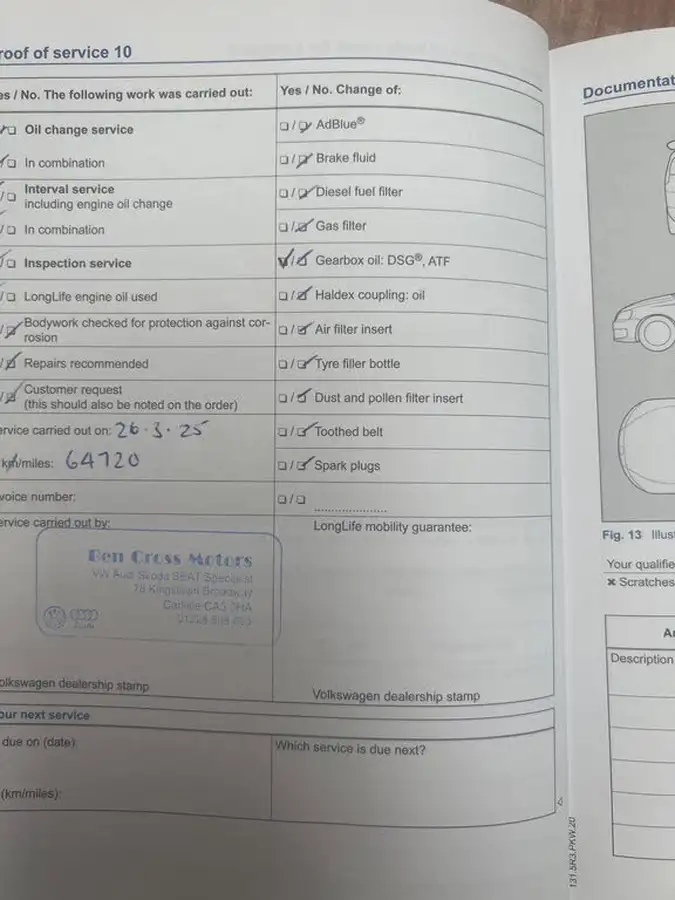 roof of service 10
es / No. The following work was carried out:
Oil change service
In combination
Interval service
including engine oil change
In combination
Inspection service
LongLife engine oil used
Bodywork checked for protection against cor-
rosion
Repairs recommended
Customer request
(this should also be noted on the order)
ervice carried out on: 26.3.25
km/miles: 64720
voice number:
ervice carried out by:
Ben Cross Motors
VW Audi Skoda SEAT Specialist
78 Kingstown Broadway
Carlisle CA3 0HA
01228
olkswagen dealership stamp
our next service
due on (date):
(km/miles):
Yes / No. Change of:
AdBlue®
Brake fluid
Diesel fuel filter
Gas filter
Gearbox oil: DSG®, ATF
Haldex coupling: oil
Air filter insert
Tyre filler bottle
Dust and pollen filter insert
Toothed belt
Spark plugs
LongLife mobility guarantee:
Volkswagen dealership stamp
Which service is due next?
131.5R3.PKW.20
Documentat
Fig. 13 Illus
Your qualifie
✖ Scratches
Ar
Description